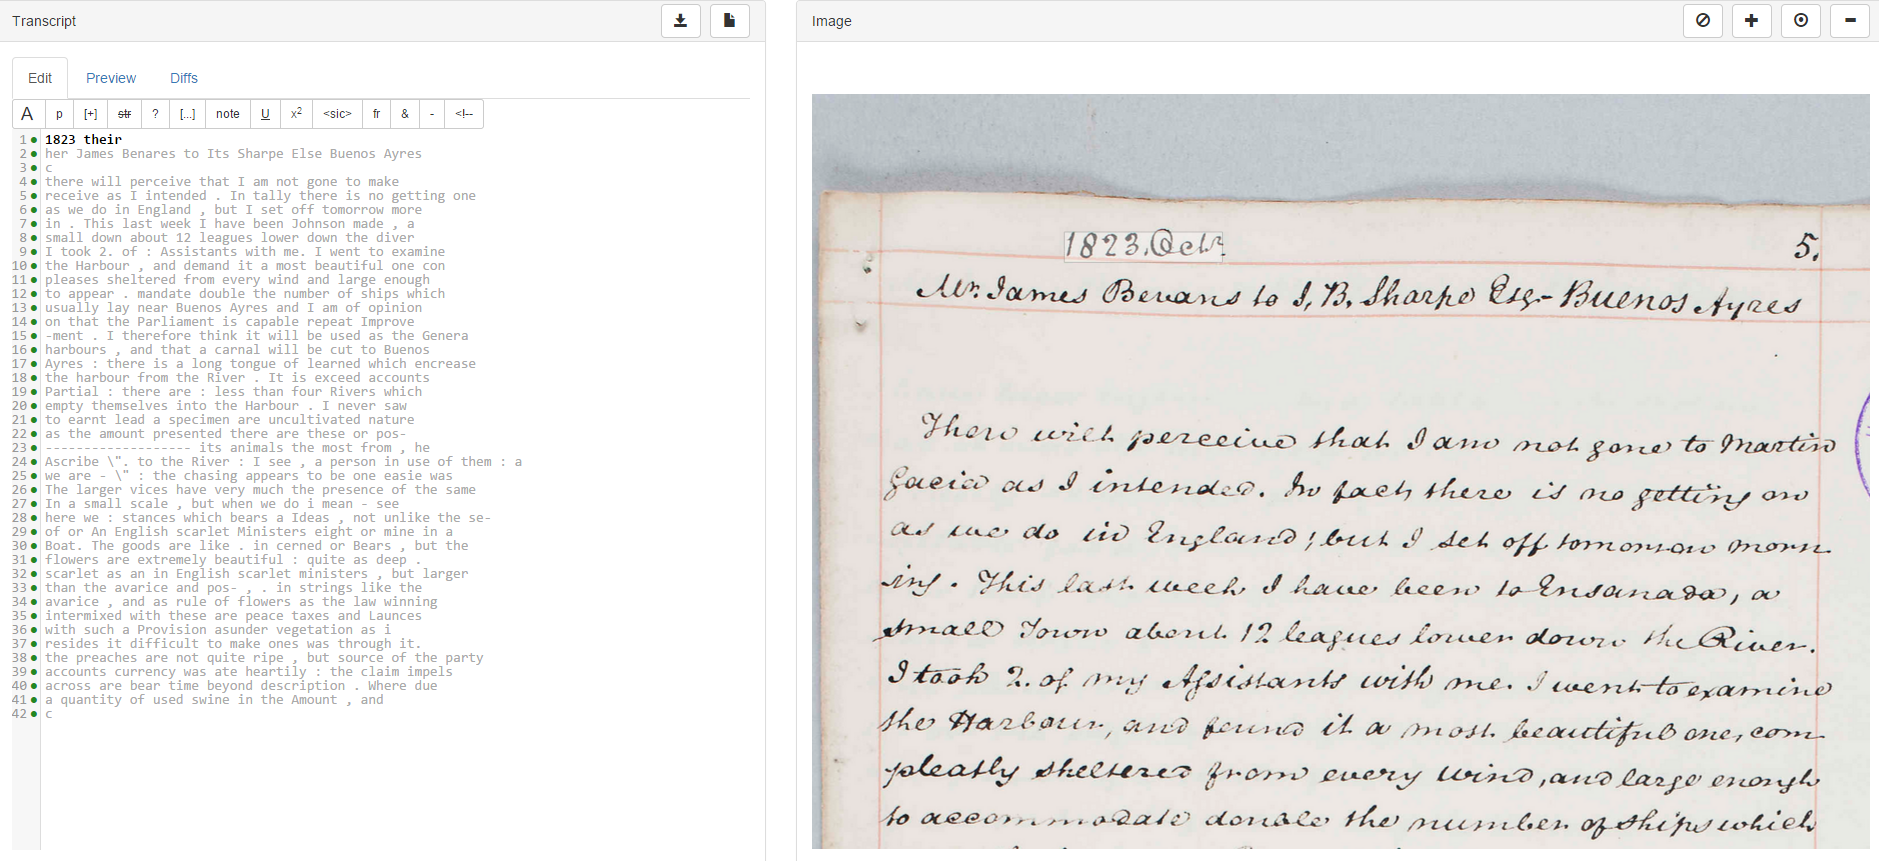 Transcript
Image
Edit
Preview
Diffs
A p [+] str ? [...] note U x² <sic> fr & - <!--
1 1823 their
2 her James Benares to Its Sharpe Else Buenos Ayres
3 c
4 there will perceive that I am not gone to make
5 receive as I intended . In tally there is no getting one
6 as we do in England , but I set off tomorrow more
7 in . This last week I have been Johnson made , a
8 small down about 12 leagues lower down the diver
9 I took 2. of : Assistants with me. I went to examine
10 the Harbour , and demand it a most beautiful one con
11 pleases sheltered from every wind and large enough
12 to appear . mandate double the number of ships which
13 usually lay near Buenos Ayres and I am of opinion
14 on that the Parliament is capable repeat Improve
15 -ment . I therefore think it will be used as the Genera
16 harbours , and that a carnal will be cut to Buenos
17 Ayres : there is a long tongue of learned which encrease
18 the harbour from the River . It is exceed accounts
19 Partial : there are : less than four Rivers which
20 empty themselves into the Harbour . I never saw
21 to earnt lead a specimen are uncultivated nature
22 as the amount presented there are these or pos-
23 ------------------- its animals the most from , he
24 Ascribe \". to the River : I see , a person in use of them : a
25 we are - \" : the chasing appears to be one easie was
26 The larger vices have very much the presence of the same
27 In a small scale , but when we do i mean - see
28 here we : stances which bears a Ideas , not unlike the se-
29 of or An English scarlet Ministers eight or mine in a
30 Boat. The goods are like . in cerned or Bears , but the
31 flowers are extremely beautiful : quite as deep .
32 scarlet as an in English scarlet ministers , but larger
33 than the avarice and pos- , . in strings like the
34 avarice , and as rule of flowers as the law winning
35 intermixed with these are peace taxes and Launces
36 with such a Provision asunder vegetation as i
37 resides it difficult to make ones was through it.
38 the preaches are not quite ripe , but source of the party
39 accounts currency was ate heartily : the claim impels
40 across are bear time beyond description . Where due
41 a quantity of used swine in the Amount , and
42 c
1823. Octr.
5.
Mr. James Bevans to J. B. Sharpe Esq.- Buenos Ayres
There wilt perceive that I am not gone to Martin
Gacia as I intended. In fact, there is no getting on
as we do in England; but I set off tomorrow morn
ing. This last week I have been to Ensanada, a
small Town about 12 leagues lower down the River.
I took 2. of my Assistants with me. I went to examine
the Harbour, and found it a most beautiful one, com
pleatly sheltered from every wind, and large enough
to accommodate double the number of ships which